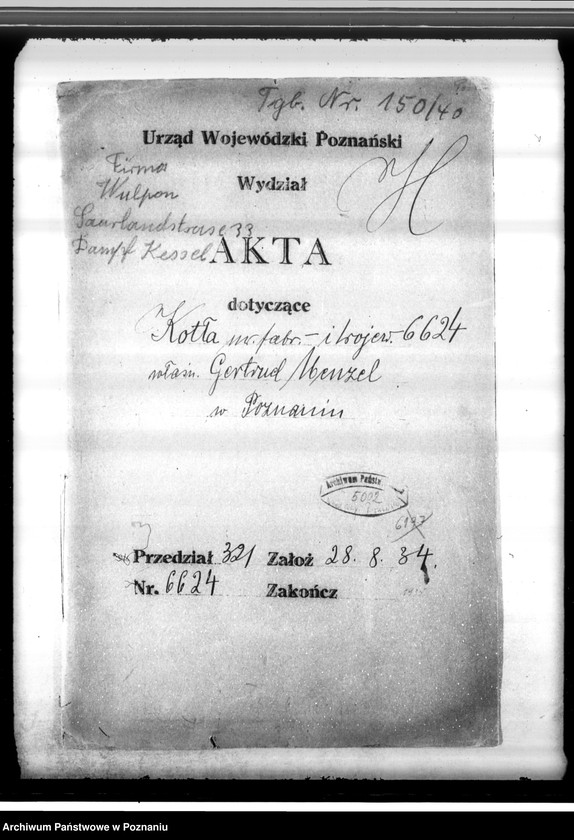 Tgb. Nr. 150/40
Urząd Wojewódzki Poznański
Wydział
H
Firma
Wulpon
Saarlandstrase 33
Dampf Kessel
AKTA
dotyczące
Kotła nr. fabr. — i wojew. 6624
własn. Gertrud Menzel
w Poznaniu
Archiwum Państw.
5002
6197
Przedział 321 Założ 28. 8. 34.
Nr. 6624 Zakończ
Archiwum Państwowe w Poznaniu